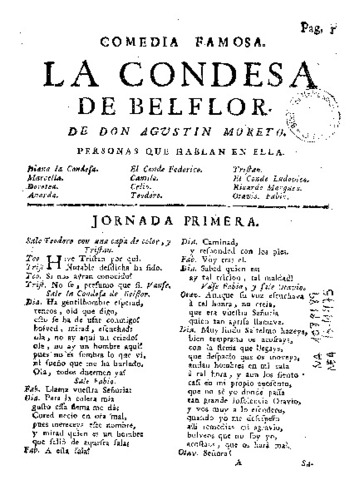 Pag. 1
COMEDIA FAMOSA.
LA CONDESA
DE BELFLOR.
DE DON AGUSTIN MORETO.
PERSONAS QUE HABLAN EN ELLA.
Diana la Condesa. El Conde Federico. Tristan.
Marcella. Camilo. El Conde Ludovico.
Dorotea. Celio. Ricardo Marques.
Anarda. Teodoro. Otavio. Fabio.
JORNADA PRIMERA.
Sale Teodoro con una capa de color, y
Tristan.
Teo. HUye Tristan por qui.
Trist. Notable desdicha ha sido.
Teo. Si nos avràn conocido?
Trist. No se, presumo que si. Vanse.
Sale la Condesa de Belflor.
Dia. Ha gentilhombre esperad,
teneos, oid que digo,
esto se ha de usar conmigo?
bolved, mirad, escuchad:
ola, no ay aqui un criado?
ole, no ay un hombre aqui?
pues no es sombra lo que vi,
ni sueño que me ha burlado.
Ola, todos duermen ya?
Sale Fabio.
Fab. Llama vuestra Señoria?
Dia. Para la colera mia
gusto essa flema me dà:
Cored necio en ora mal,
pues mereceis este nombre,
y mirad quien es un hombre
que saliò de aquessa sala?
Fab. A esta sala?
Dia. Caminad,
y responded con los pies.
Fab. Voy tras el.
Dia. Sabed quien es,
ay tal traicion, tal maldad?
Vase Fabio, y sale Otavio.
Otav. Aunque su voz escuchava
à tal hora, no creia,
que era vuestra Señoria
quien tan aprisa llamava.
Dia. Muy lindo Santelmo hazeya,
bien temprano os acostays,
con la flema que llegays,
que despacio que os moveys,
andan hombres en mi casa
à tal hora, y aun los siento
casi en mi propio aposento,
que no sè yo donde passa
tan grande insolencia Otavio,
y vos muy a lo escudero,
quando yo me desespero
assi remedias mi agravio,
bolveos que no soy yo,
acostaos, que os harà mal.
Otav. Señora!
A Sa-